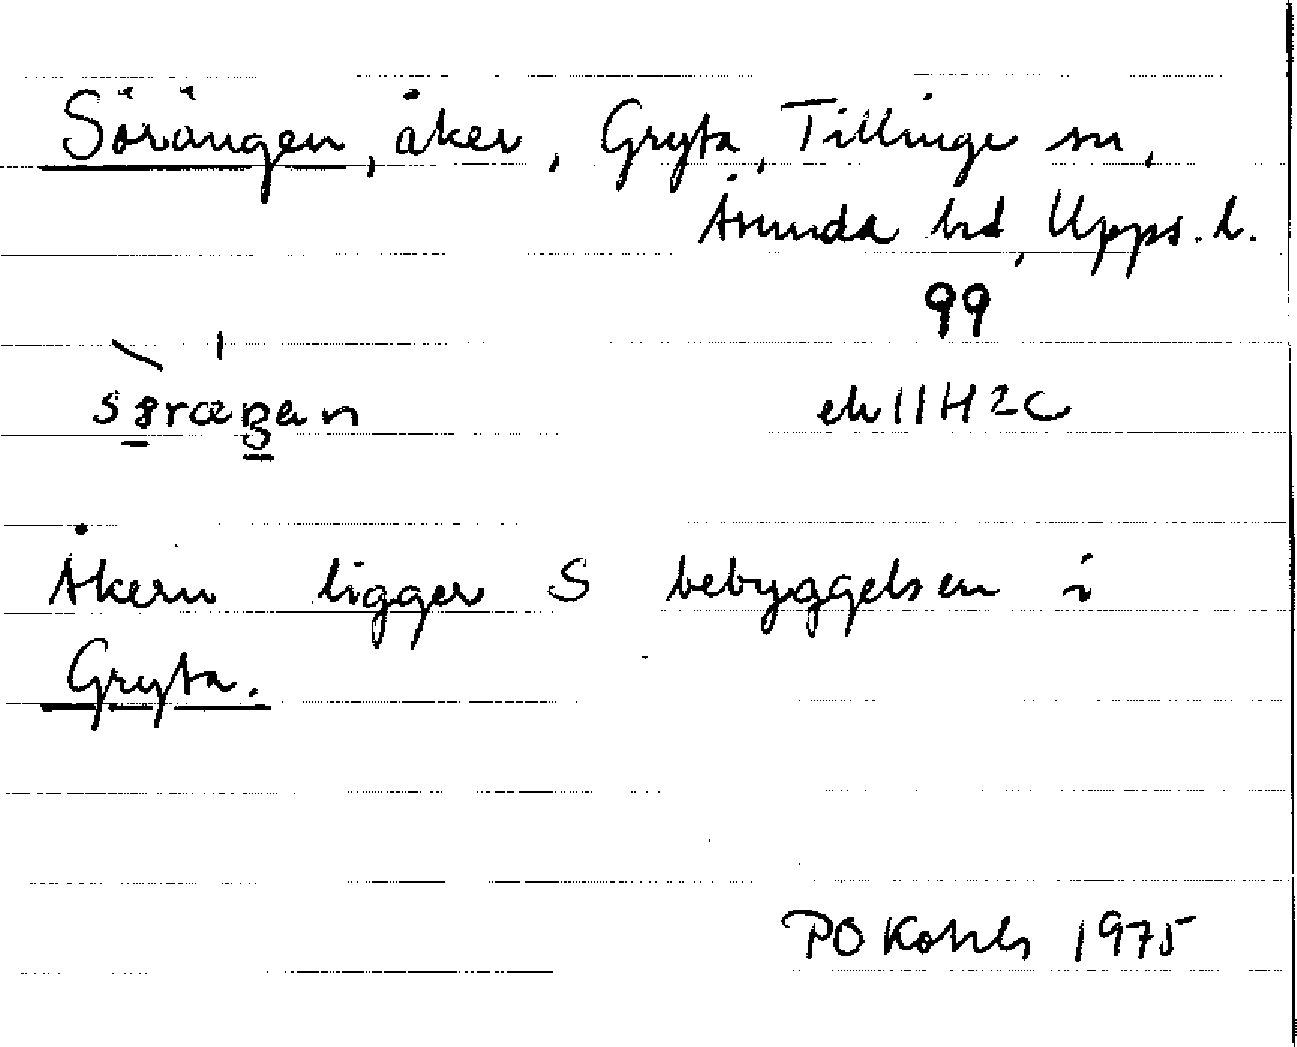 Sörängen, åker, Gryta, Tillinge sn,
Åsunda hd, Upps. l.
99
ek 11H2c
Åkern ligger S bebyggelsen i
Gryta.
PO Kohls 1975